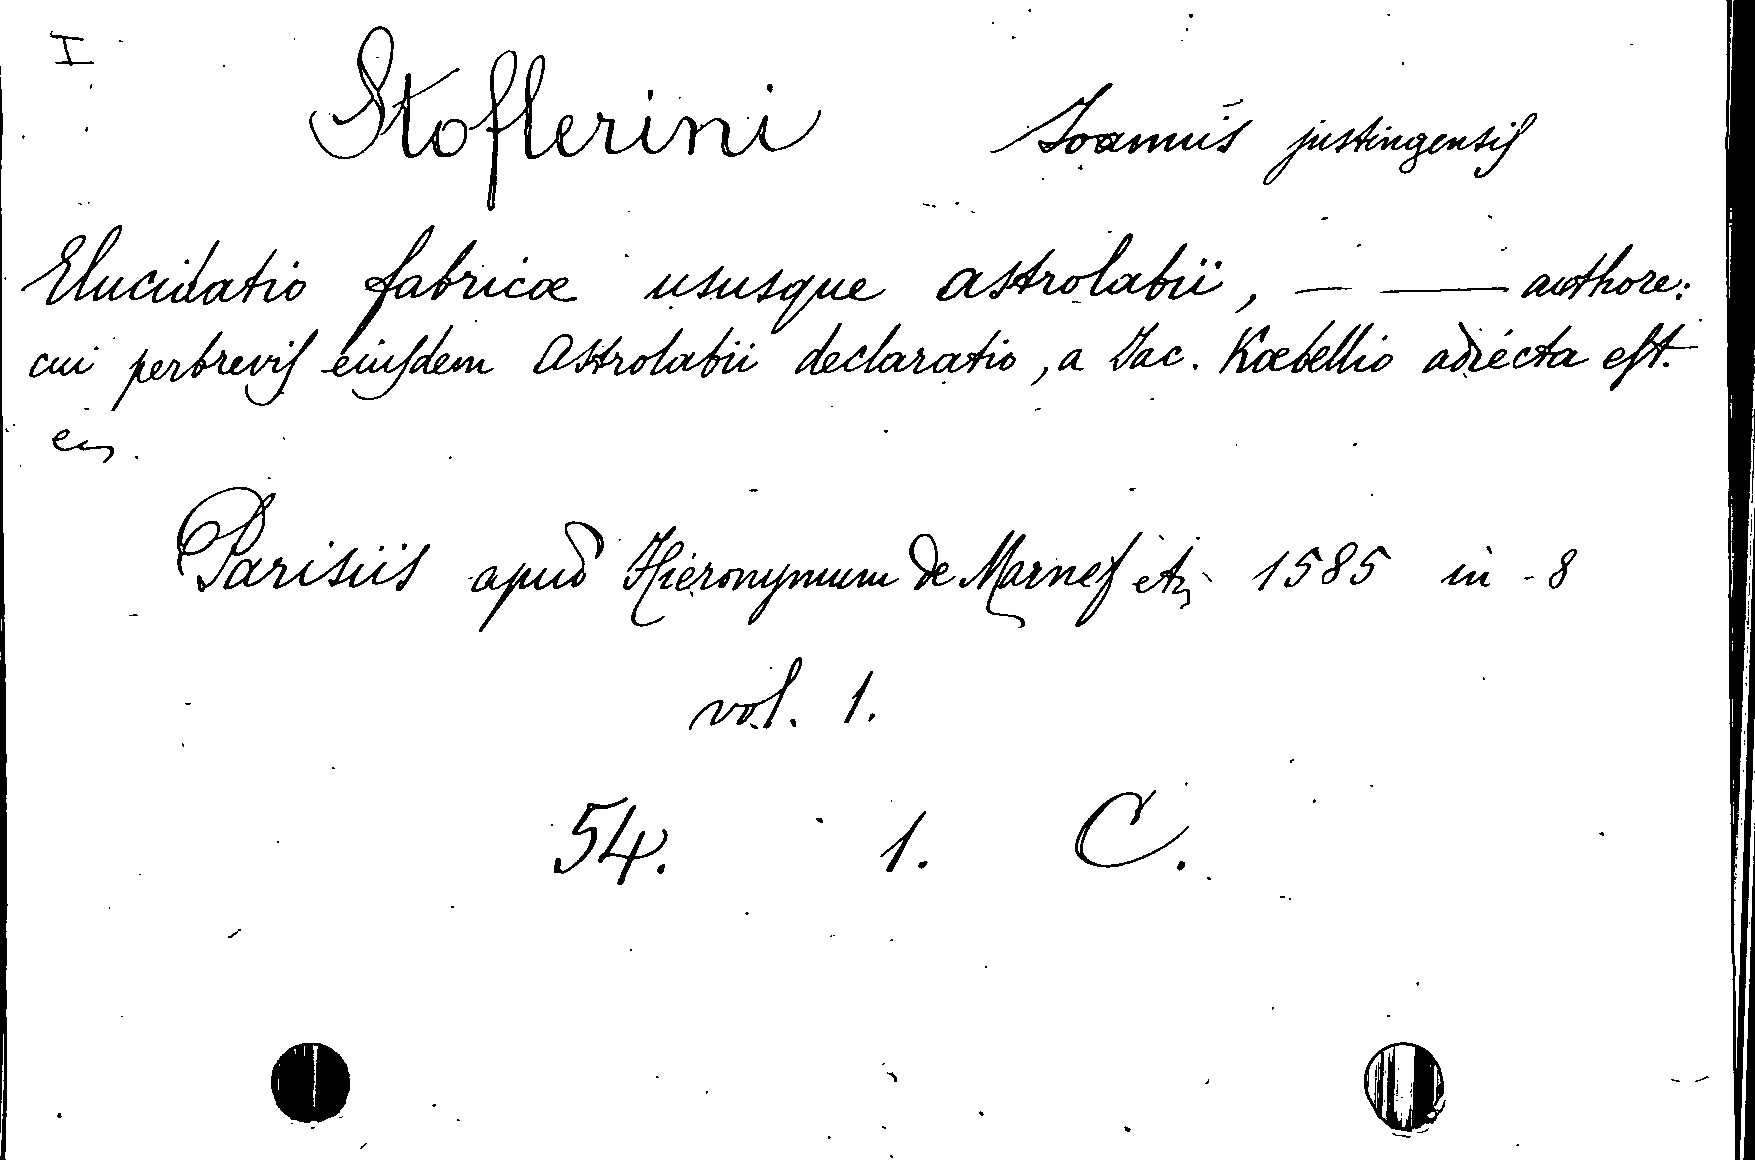 I
Stoflerini Ioannis justingensis
Elucidatio fabricæ ususque astrolabii, — — authore:
cui perbrevis eiusdem Astrolabii declaratio, a Iac. Kœbellio adiecta est.
Parisiis apud Hieronymum de Marnef etc 1585 in - 8
vol. 1.
54. 1. C.